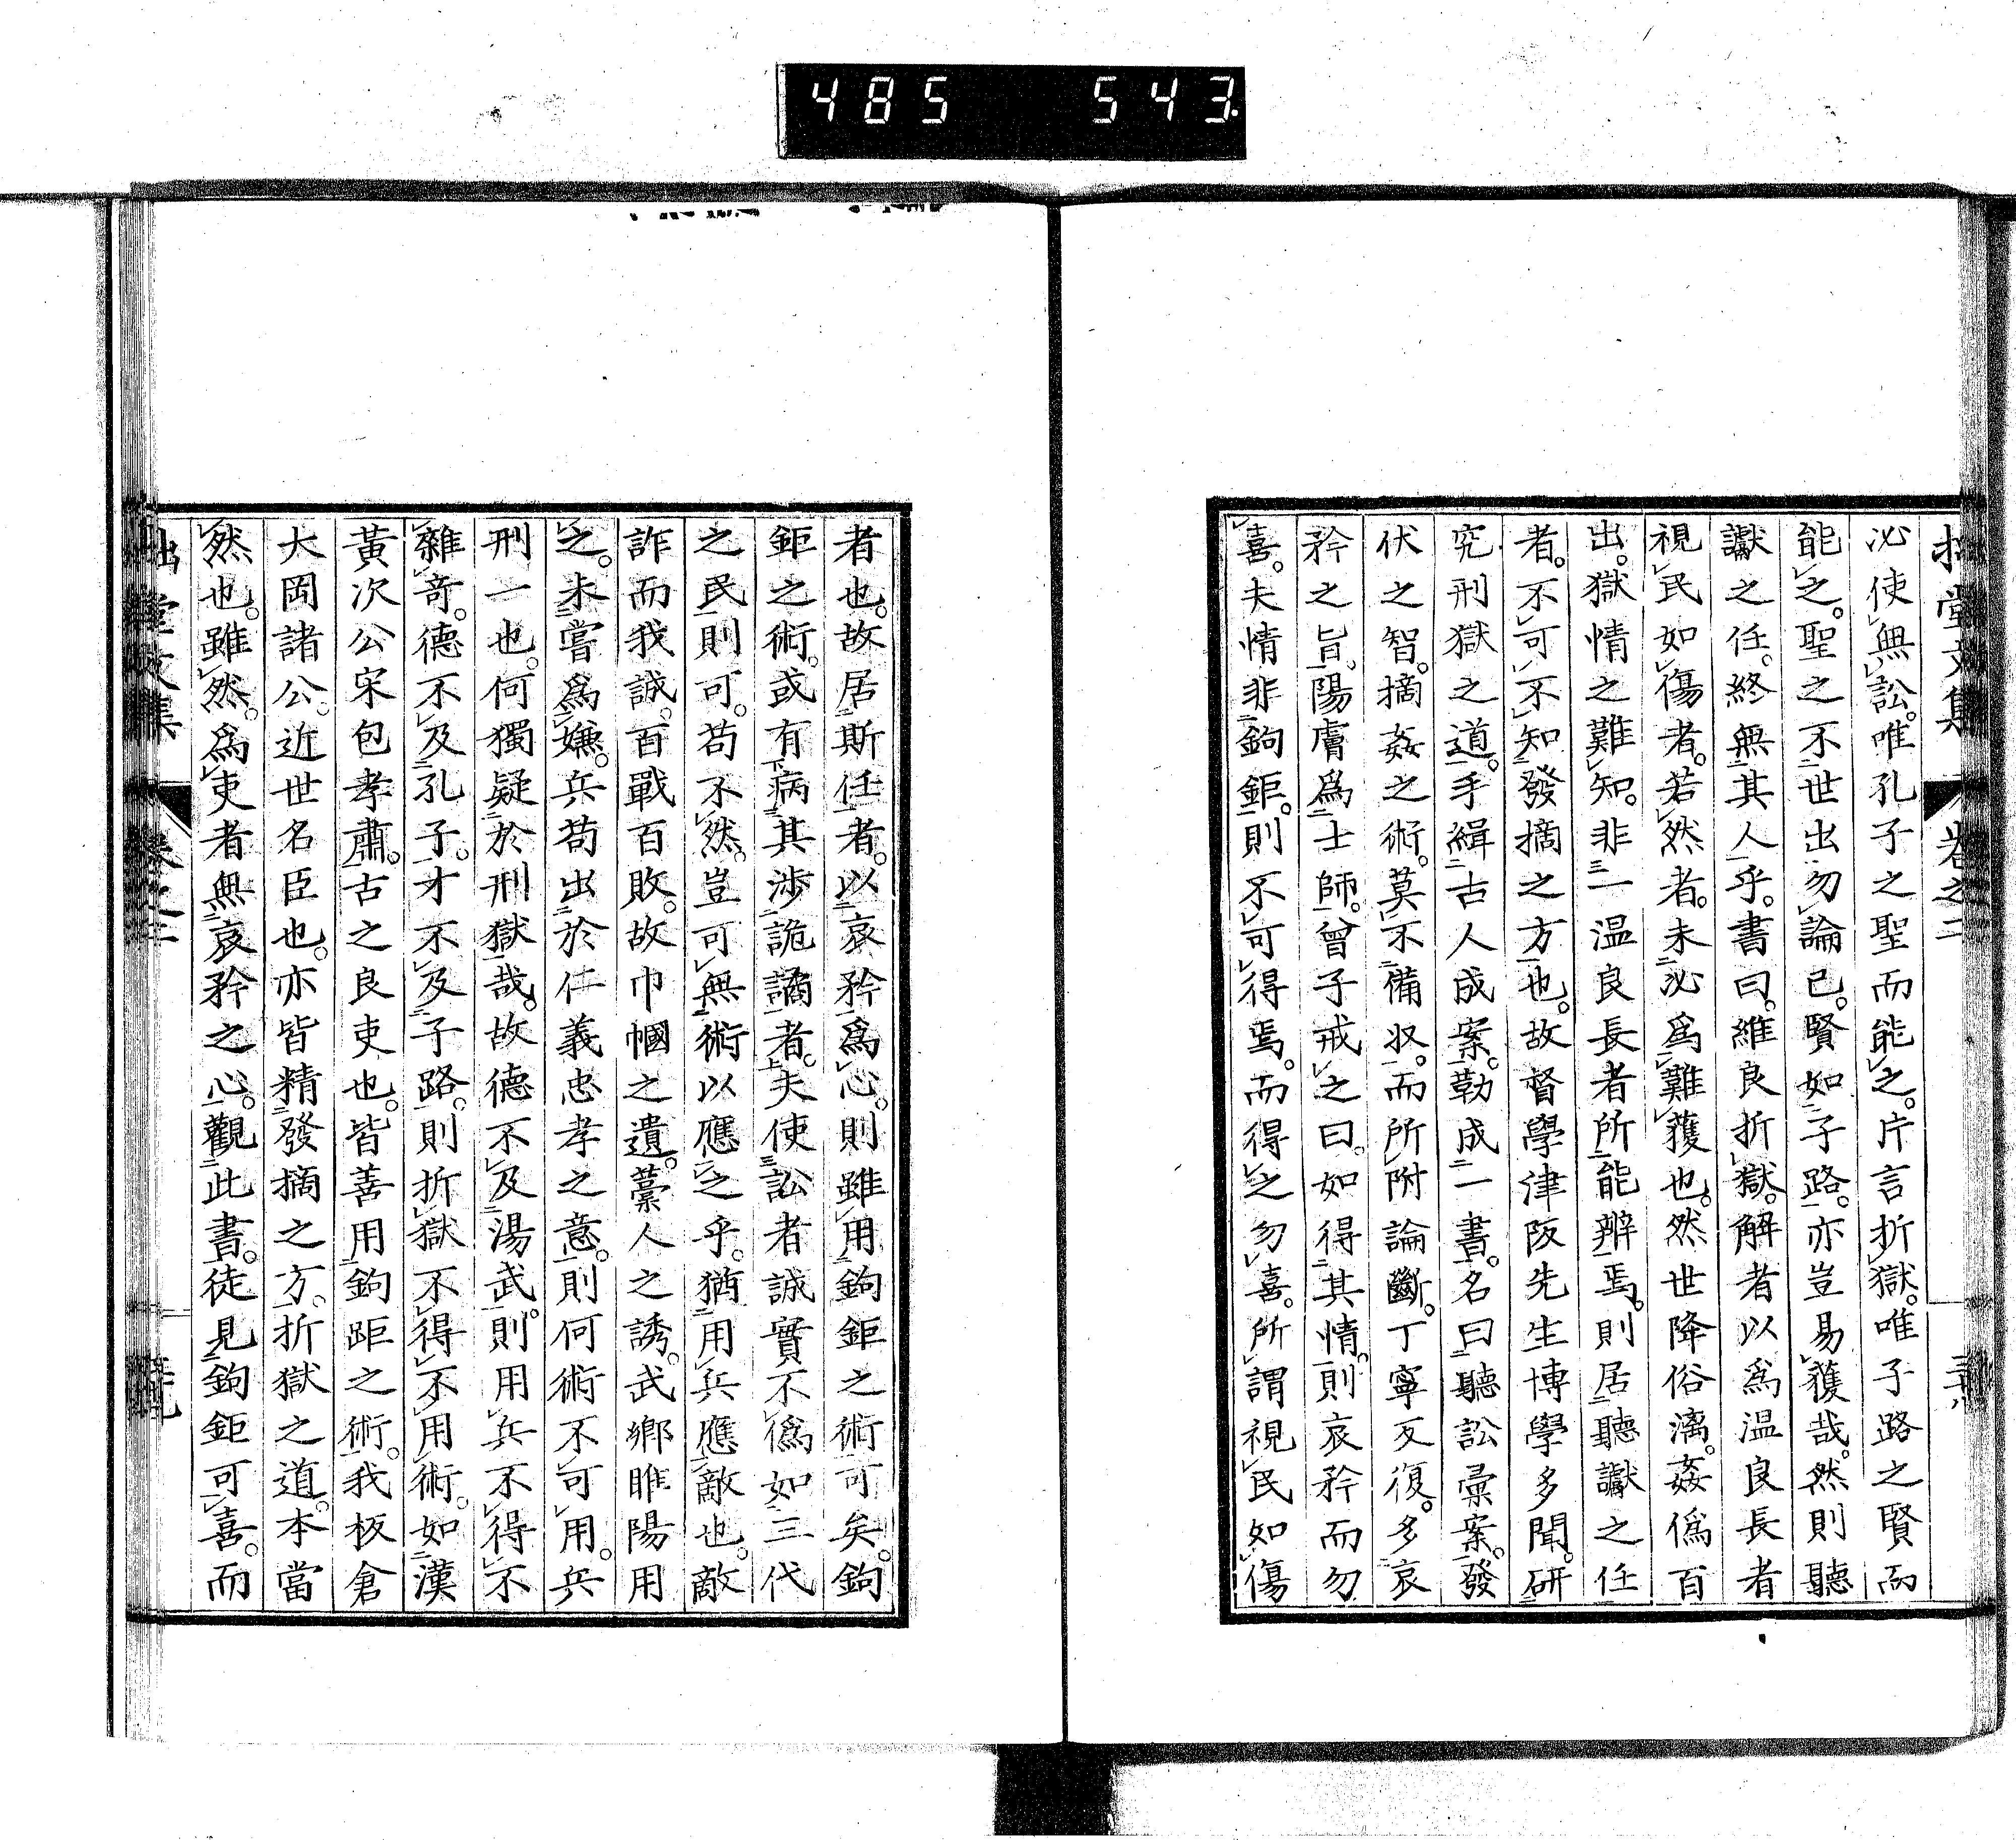 485 543
堂文集 卷之二
必使無訟。唯孔子之聖而能之。片言折獄。唯子路之賢而
能之。聖之不世出勿論已。賢如子路。亦豈易獲哉。然則聽
讞之任。終無其人乎。書曰。維良折獄。解者以爲温良長者
視民如傷者。若然者。未必爲難獲也。然世降俗漓。姦僞百
出。獄情之難知。非一温良長者所能辨焉。則居聽讞之任
者。不可不知發摘之方也。故督學津阪先生博學多聞。研
究刑獄之道。手緝古人成案。勒成一書。名曰聽訟彙案。發
伏之智。摘姦之術。莫不備収。而所附論斷。丁寧反復。多哀
矜之旨。陽膚爲士師。曾子戒之曰。如得其情。則哀矜而勿
喜。夫情非鉤鉅。則不可得焉。而得之勿喜。所謂視民如傷
者也。故居斯任者。以哀矜爲心。則雖用鉤鉅之術可矣。鉤
鉅之術。或有病其渉詭譎者。夫使訟者誠實不僞如三代
之民則可。苟不然。豈可無術以應之乎。猶用兵應敵也。敵
詐而我誠。百戰百敗。故巾幗之遺。藁人之誘。武鄉睢陽用
之。未嘗爲嫌。兵苟出於仁義忠孝之意。則何術不可用。兵
刑一也。何獨疑於刑獄哉。故德不及湯武。則用兵不得不
雜奇。德不及孔子。才不及子路。則折獄不得不用術。如漢
黃次公宋包孝肅。古之良吏也。皆善用鉤距之術。我板倉
大岡諸公。近世名臣也。亦皆精發摘之方。折獄之道。本當
然也。雖然。爲吏者無哀矜之心。觀此書。徒見鉤鉅可喜。而
堂文集 卷之二